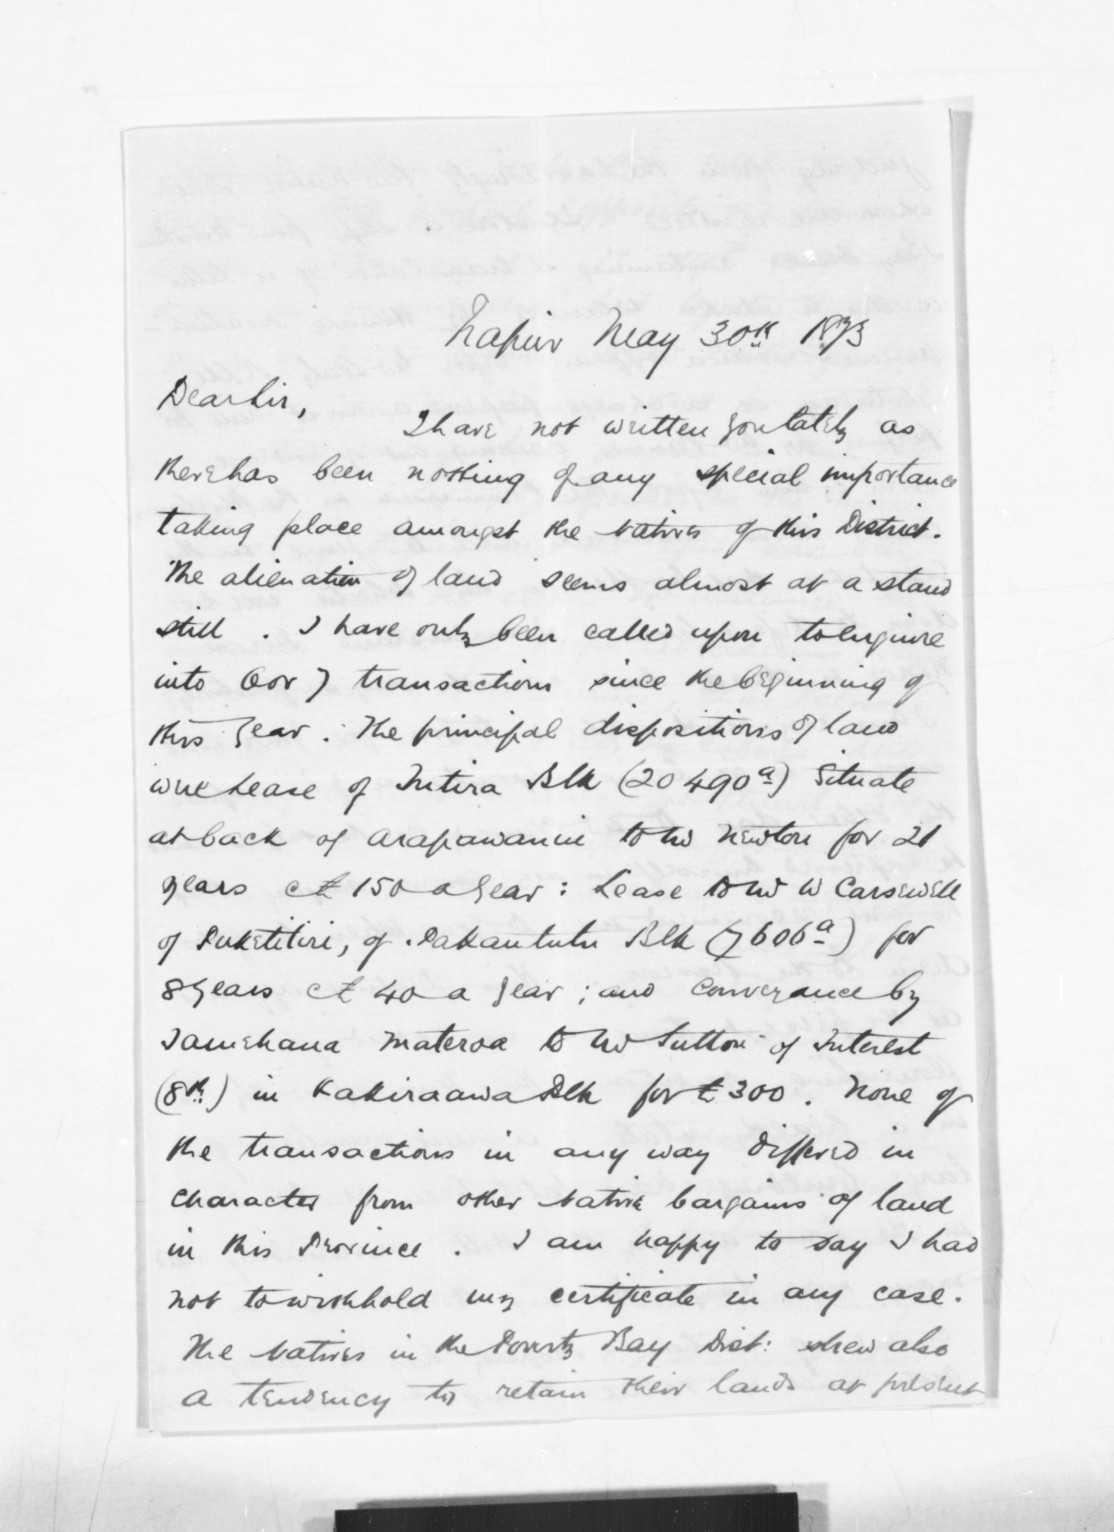 Napier May 30th 1873
Dear Sir,
I have not written you lately as
there has been nothing of any special importance
taking place amongst the Natives of this District.
The alienation of land seems almost at a stand
still. I have only been called upon to enquire
into 6 or 7 transactions since the beginning of
this year. The principal dispositions of land
were Lease of Tutira Blk (20490a) situate
at back of Arapawanui to Mr Newton for 21
years @ £150 a year: Lease to Mr W Carswell
of Puketitiri, of Pakaututu Blk (7606a) for
8 years @ £40 a year; and conveyance by
Tamehana to Mr Sutton of Interest
(8th) in Kakiraawa Blk for £300. None of
the transactions in any way differed in
character from other Native bargains of land
in this Province. I am happy to say I had
not to withhold my certificate in any case.
The Natives in the Poverty Bay Dist: shew also
a tendency to retain their lands at present